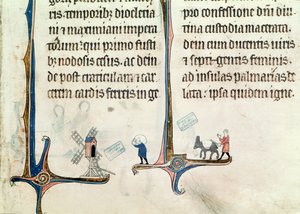 ris. temporibz diocleria
ni & maximiani impera
torum: qui primo fusti
bz nodosis cesus. ac dein
de post craticulam & car
cerem cardis ferreis in ge
pro confessione dni diu
tina custodia macerata.
dein cum ducentis viris
& septigentis feminis.
ad insulas palmarias de
lata: ipsa quidem igne.